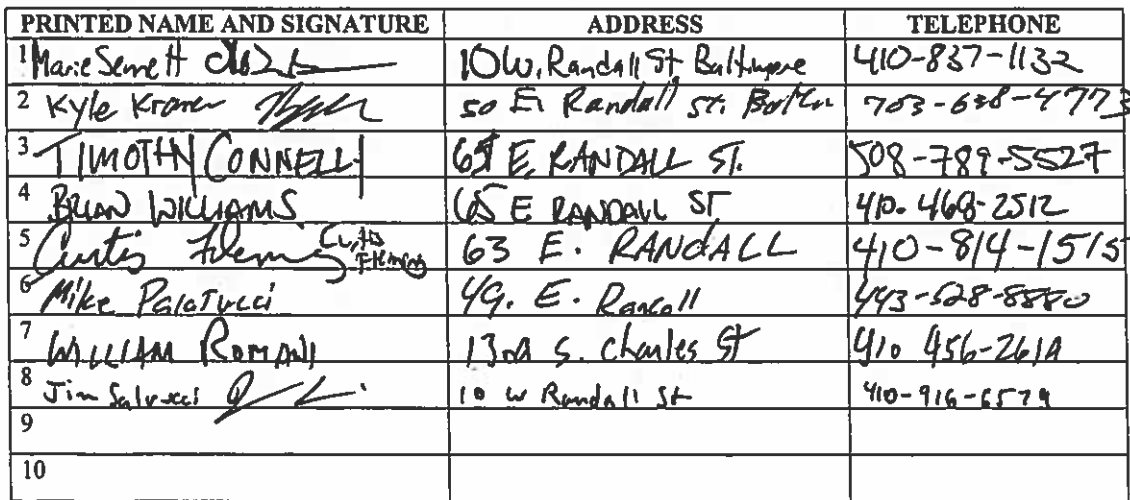 PRINTED NAME AND SIGNATURE ADDRESS TELEPHONE
1 Marie Sennett 10 W. Randall St Baltimore 410-837-1132
2 Kyle Kramer 50 E. Randall St. 703-638-4773
3 TIMOTHY CONNELLY E. RANDALL ST. 508-789-5527
4 BRIAN WILLIAMS 65 E RANDALL ST 410-468-2512
5 Curtis Fleming Curtis Fleming 63 E. RANDALL 410-814-1515
6 Mike Palatucci 49. E. Randall 443-528-8880
7 WILLIAM ROMANI S. Charles St 410 456-2619
8 Jim Salvucci 10 W Randall St 410-916-6579
9
10